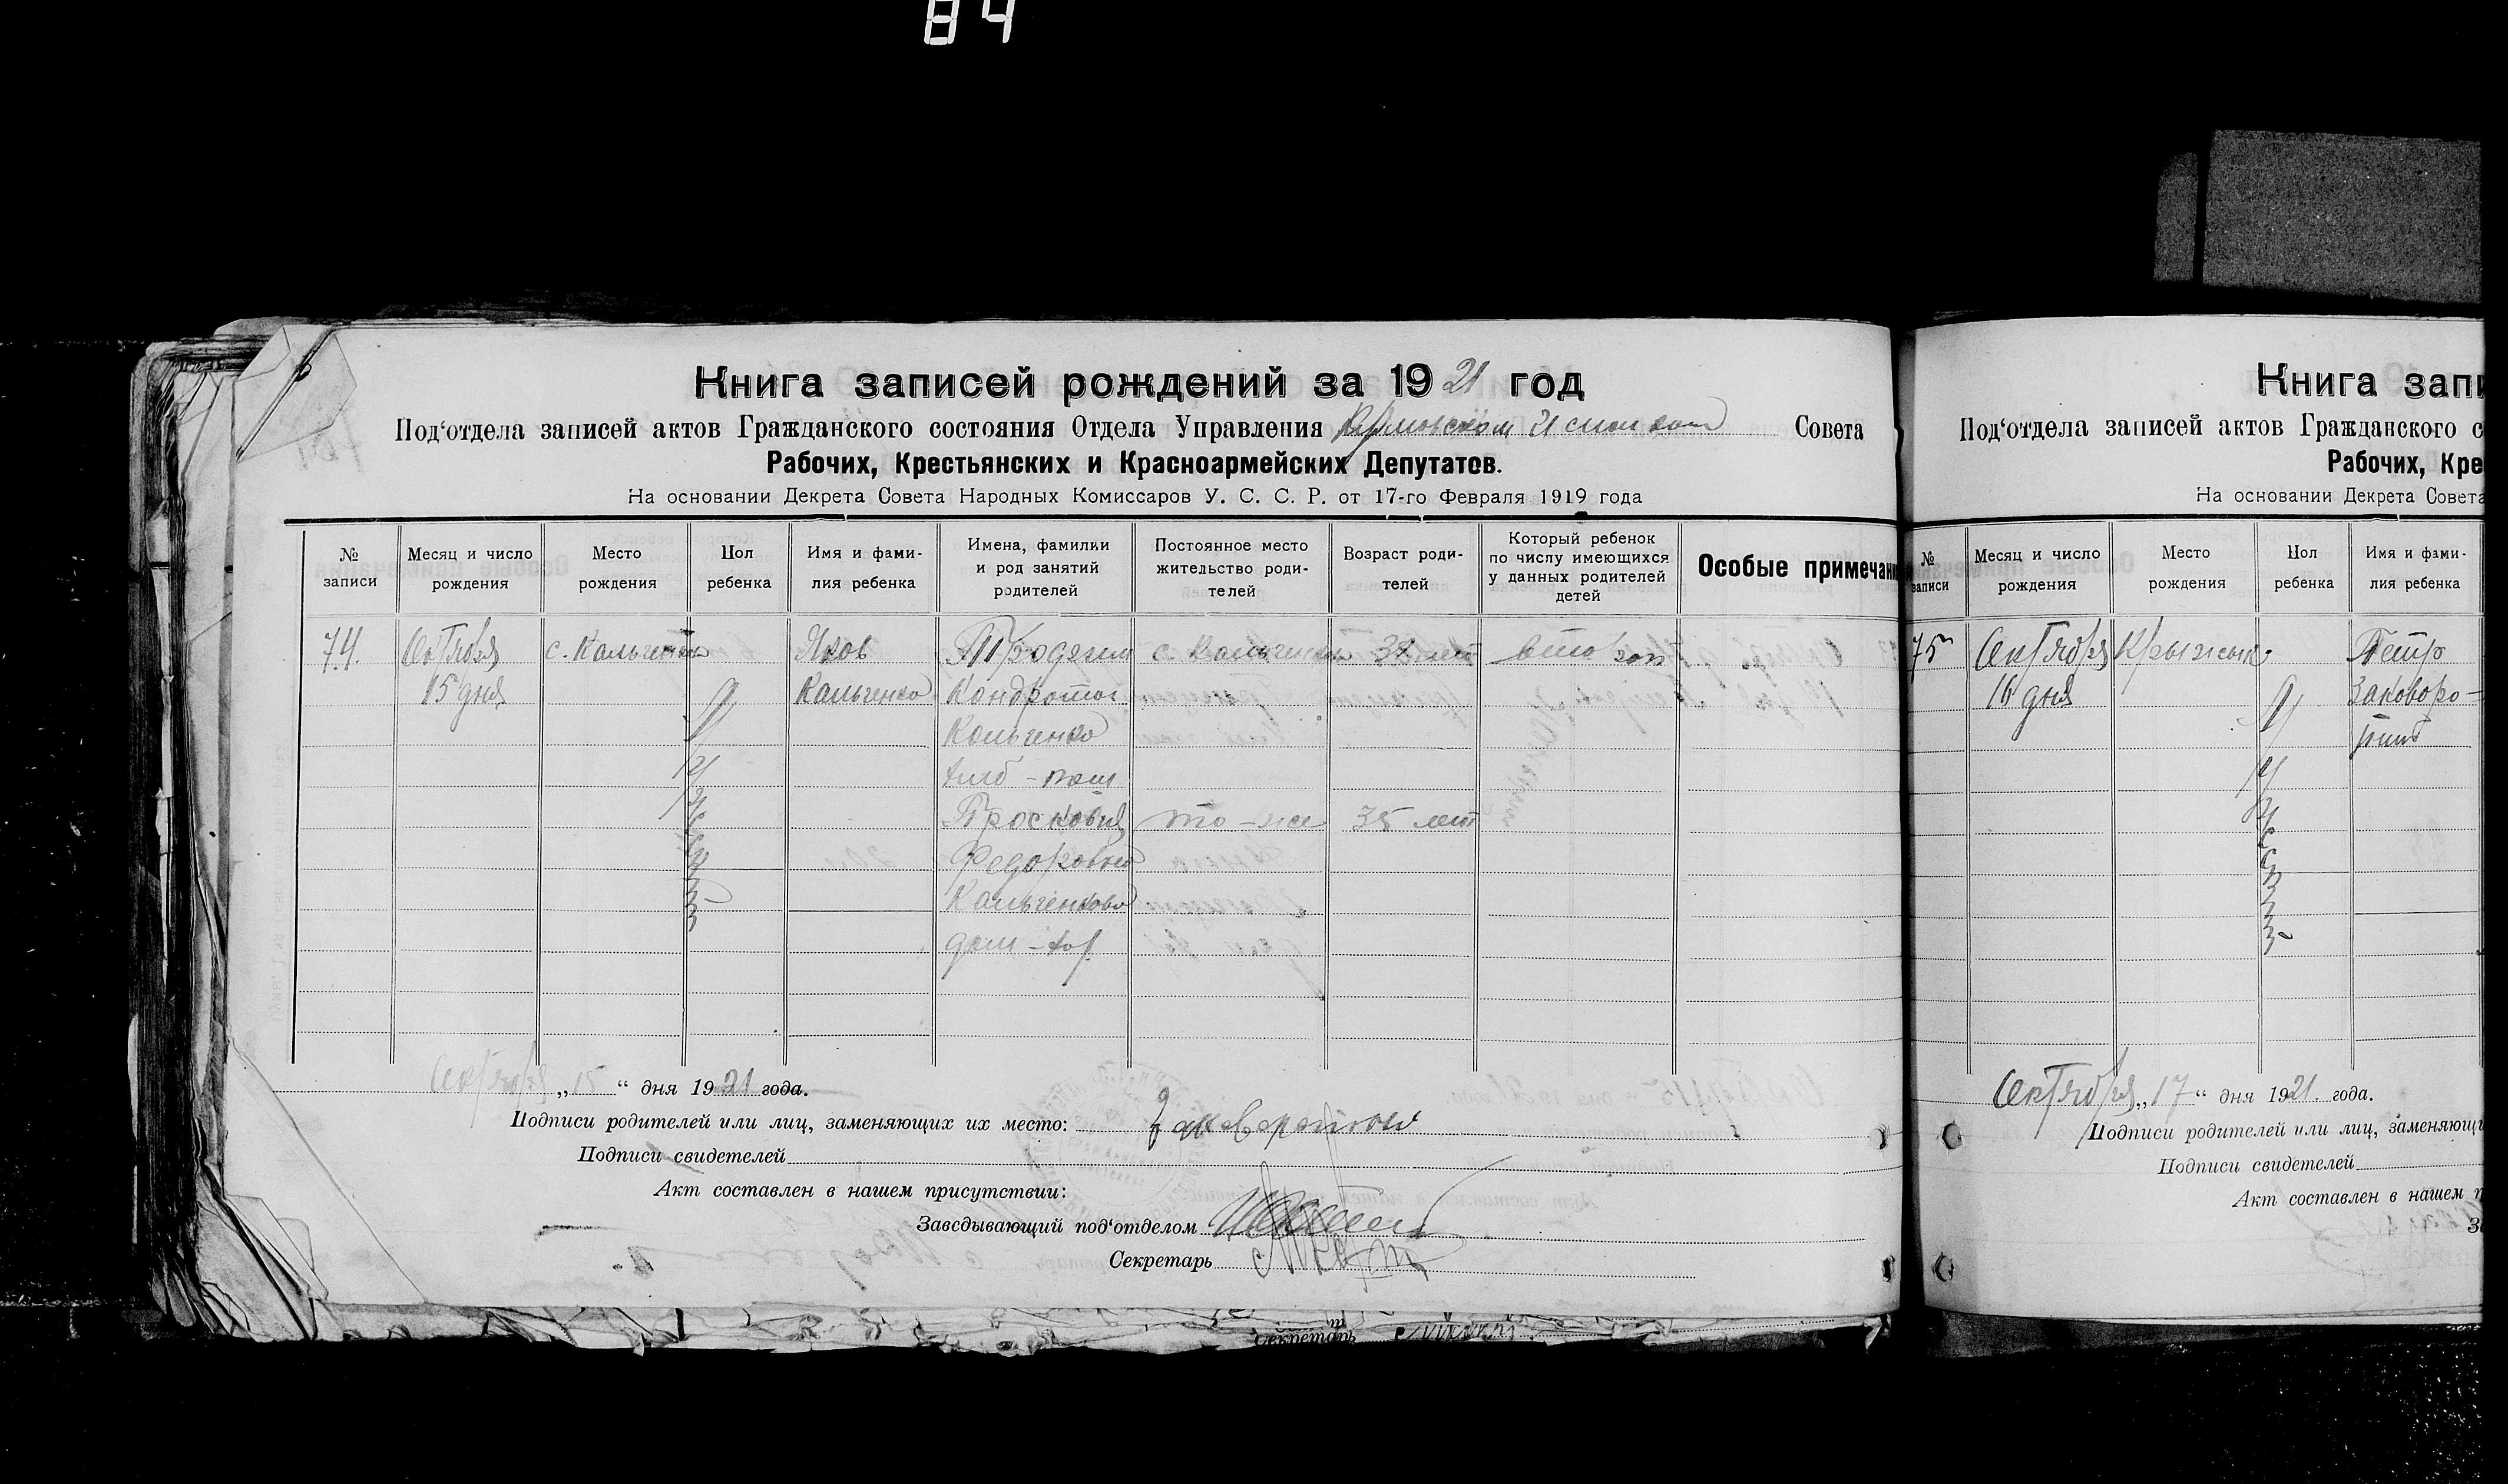 84
Книга записей рождений за 1921 год
Под‘отдела записей актов Гражданского состояния Отдела Управления Совета
Рабочих, Крестьянских и Красноармейских Депутатов.
На основании Декрета Совета Народных Комиссаров У. С. С. Р. от 17-го Февраля 1919 года
№ записи
Месяц и число рождения
Место рождения
Пол ребенка
Имя и фами-
лия ребенка
Имена, фамилии
и род занятий
родителей
Постоянное место
жительство роди-
телей
Возраст роди-
телей
Который ребенок
по числу имеющихся
у данных родителей
детей
Особые примечани
74. Октября Яков 38 лет
15 дня Кальченко Кондратов
Кальченко
хлеб - паш
Просковия то-же 35 лет
Федоровна
Кальченкова
дом - хоз.
Октября „15“ дня 1921 года.
Подписи родителей или лиц, заменяющих их место:
Подписи свидетелей
Акт составлен в нашем присутствии:
Заведывающий под‘отделом
Секретарь
Секретарь
Книга запи
Под‘отдела записей актов Гражданского с
Рабочих, Кре
На основании Декрета Совета
№ записи
Месяц и число рождения
Место рождения
Пол ребенка
Имя и фами-
лия ребенка
75 Октября Петр
16 дня Заковоро-
Октября „17“ дня 1921. года.
Подписи родителей или лиц, заменяющи
Подписи свидетелей
Акт составлен в нашем п
За